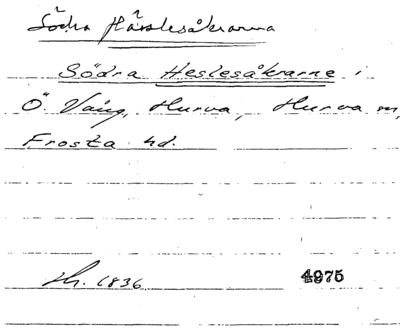 Södra Hässlesåkrarna
Södra Heslesåkrarne i
Ö. Vång, Hurva, Hurva sn,
Frosta hd.
Hr. 1836 4975